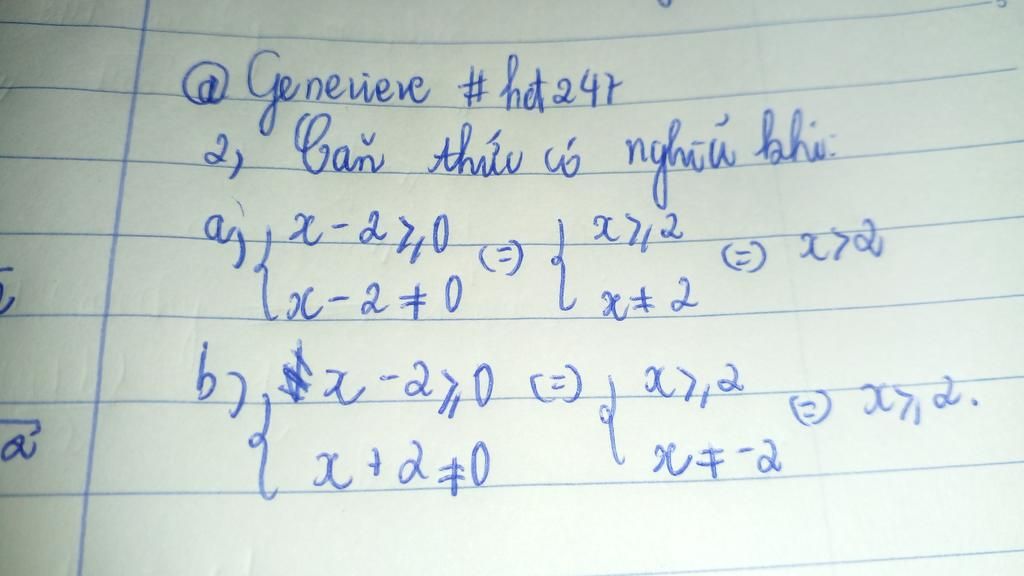 @ Genevieve # hdt 247
2, Căn thức có nghĩa khi:
a, { x - 2 ⩾ 0 (=) { x ⩾ 2 (=) x > 2
x - 2 ≠ 0 x ≠ 2
b, { x - 2 ⩾ 0 (=) { x ⩾ 2 (=) x ⩾ 2.
x + 2 ≠ 0 x ≠ -2